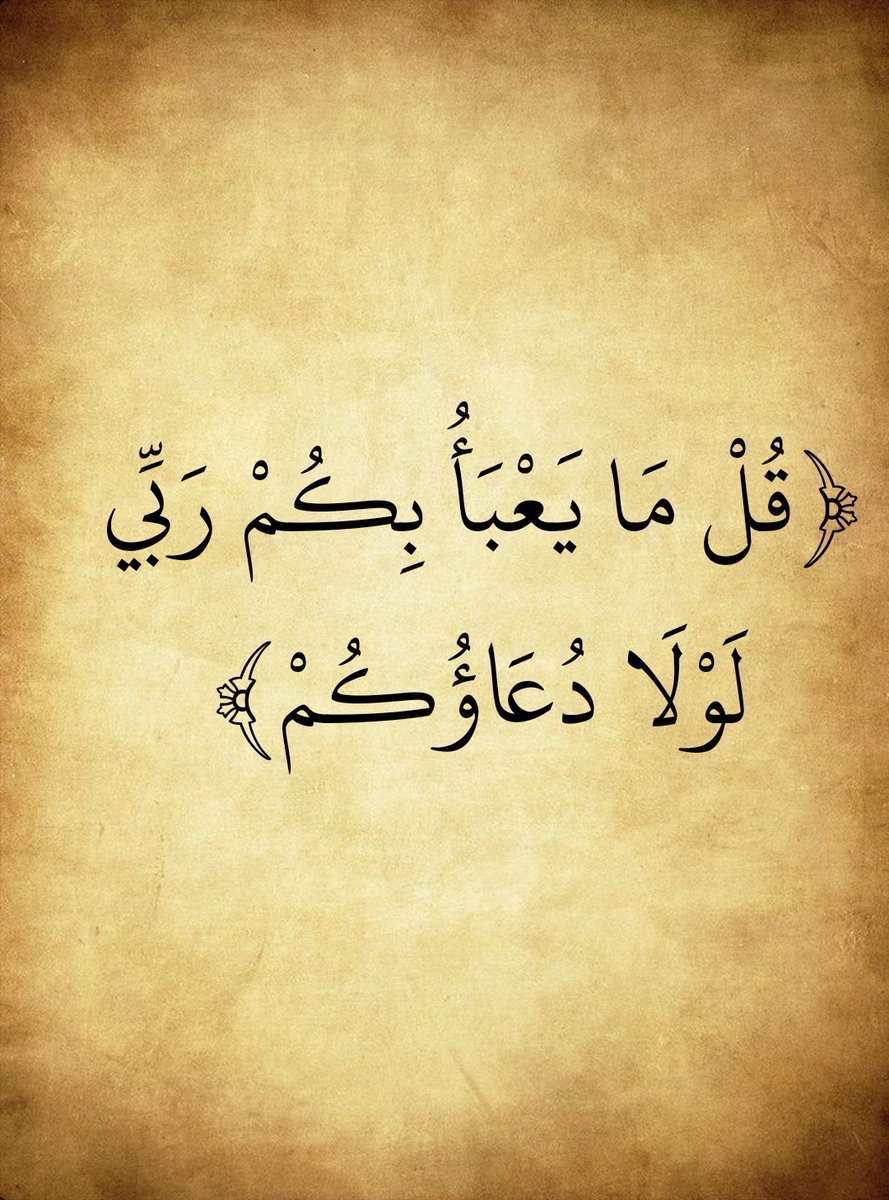 ﴿قُلْ مَا يَعْبَأُ بِكُمْ رَبِّي
لَوْلَا دُعَاؤُكُمْ﴾